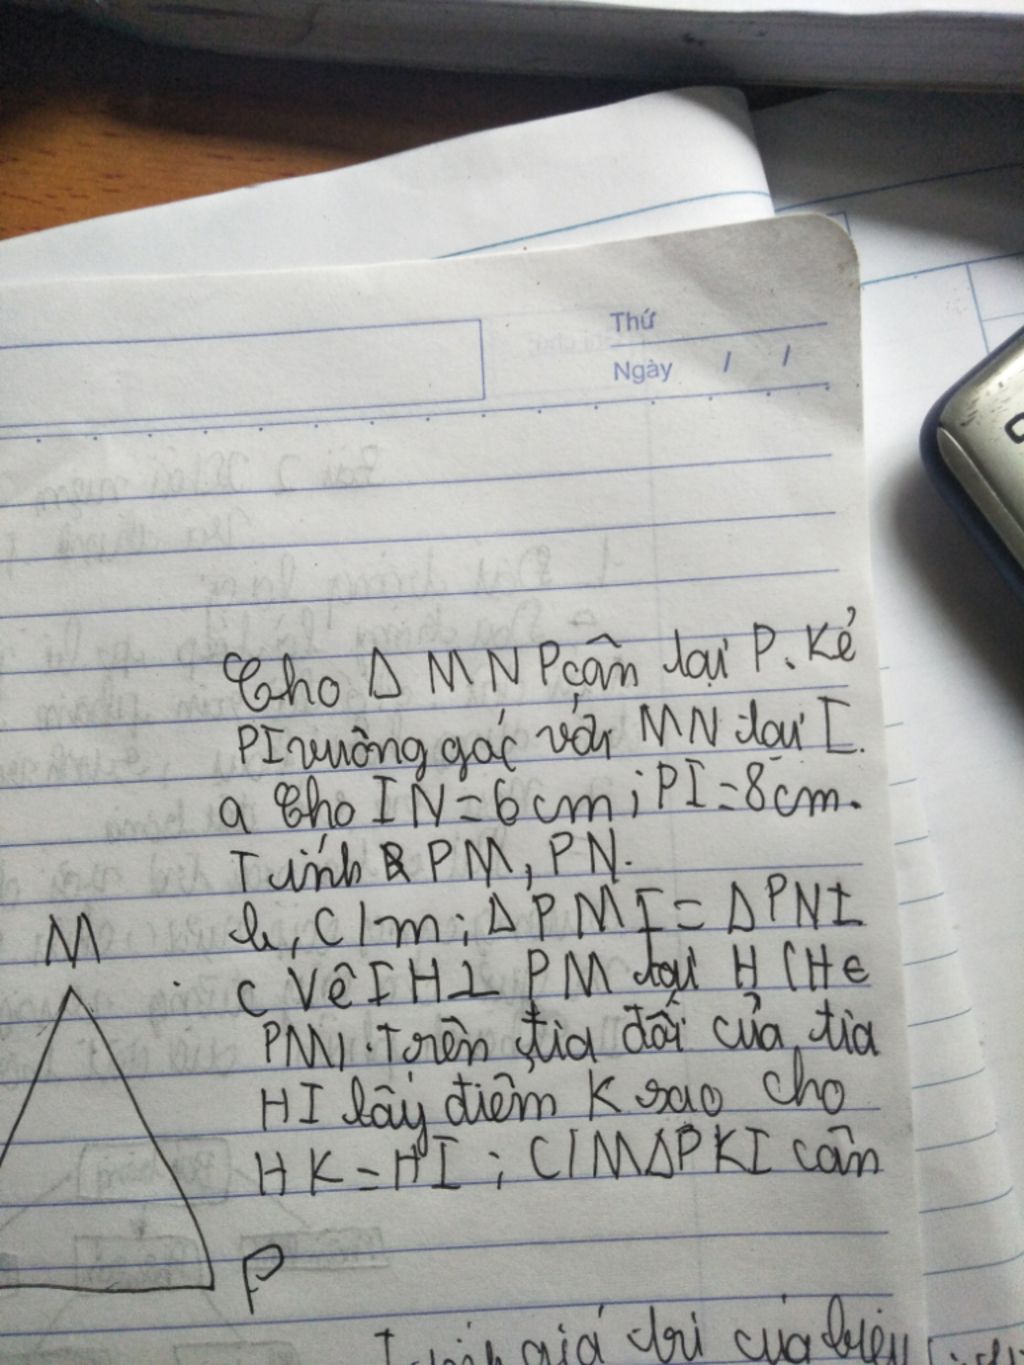 Thứ
Ngày / /
Cho Δ MNP cân tại P. Kẻ
PI vuông góc với MN tại I.
a Cho IN = 6cm; PI = 8cm.
Tính PM, PN.
b, C/m; ΔPMI = ΔPNI
c Vẽ IH⊥ PM tại H (H∈
PM). Trên tia đối của tia
HI lấy điểm K sao cho
HK = HI; C/M ΔPKI cân
M
P
giá trị của